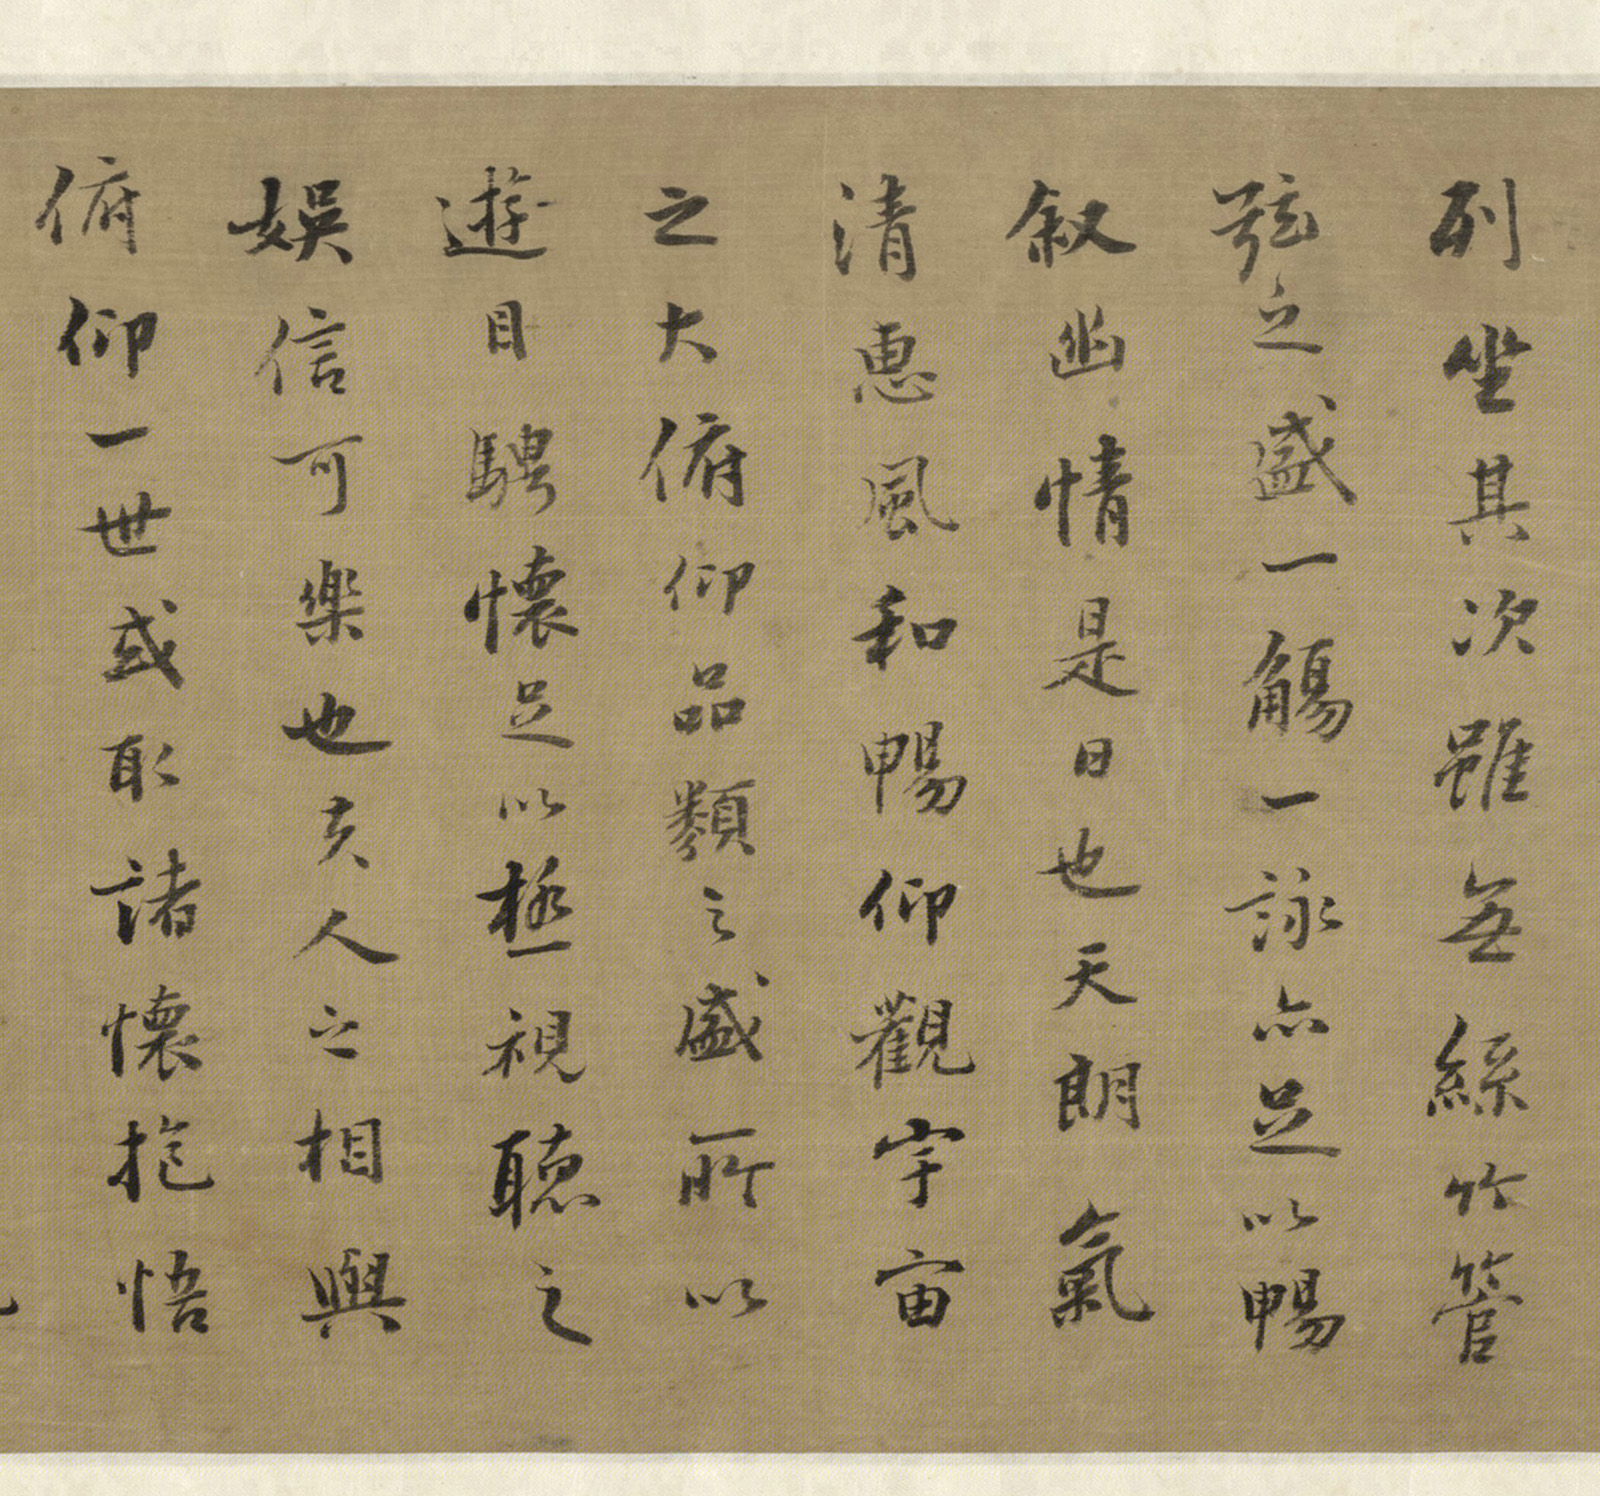 列坐其次雖無絲竹管
弦之盛一觴一詠亦足以暢
叙幽情是日也天朗氣
清惠風和暢仰觀宇宙
之大俯仰品類之盛所以
遊目騁懷足以極視聽之
娛信可樂也夫人之相與
俯仰一世或取諸懷抱悟